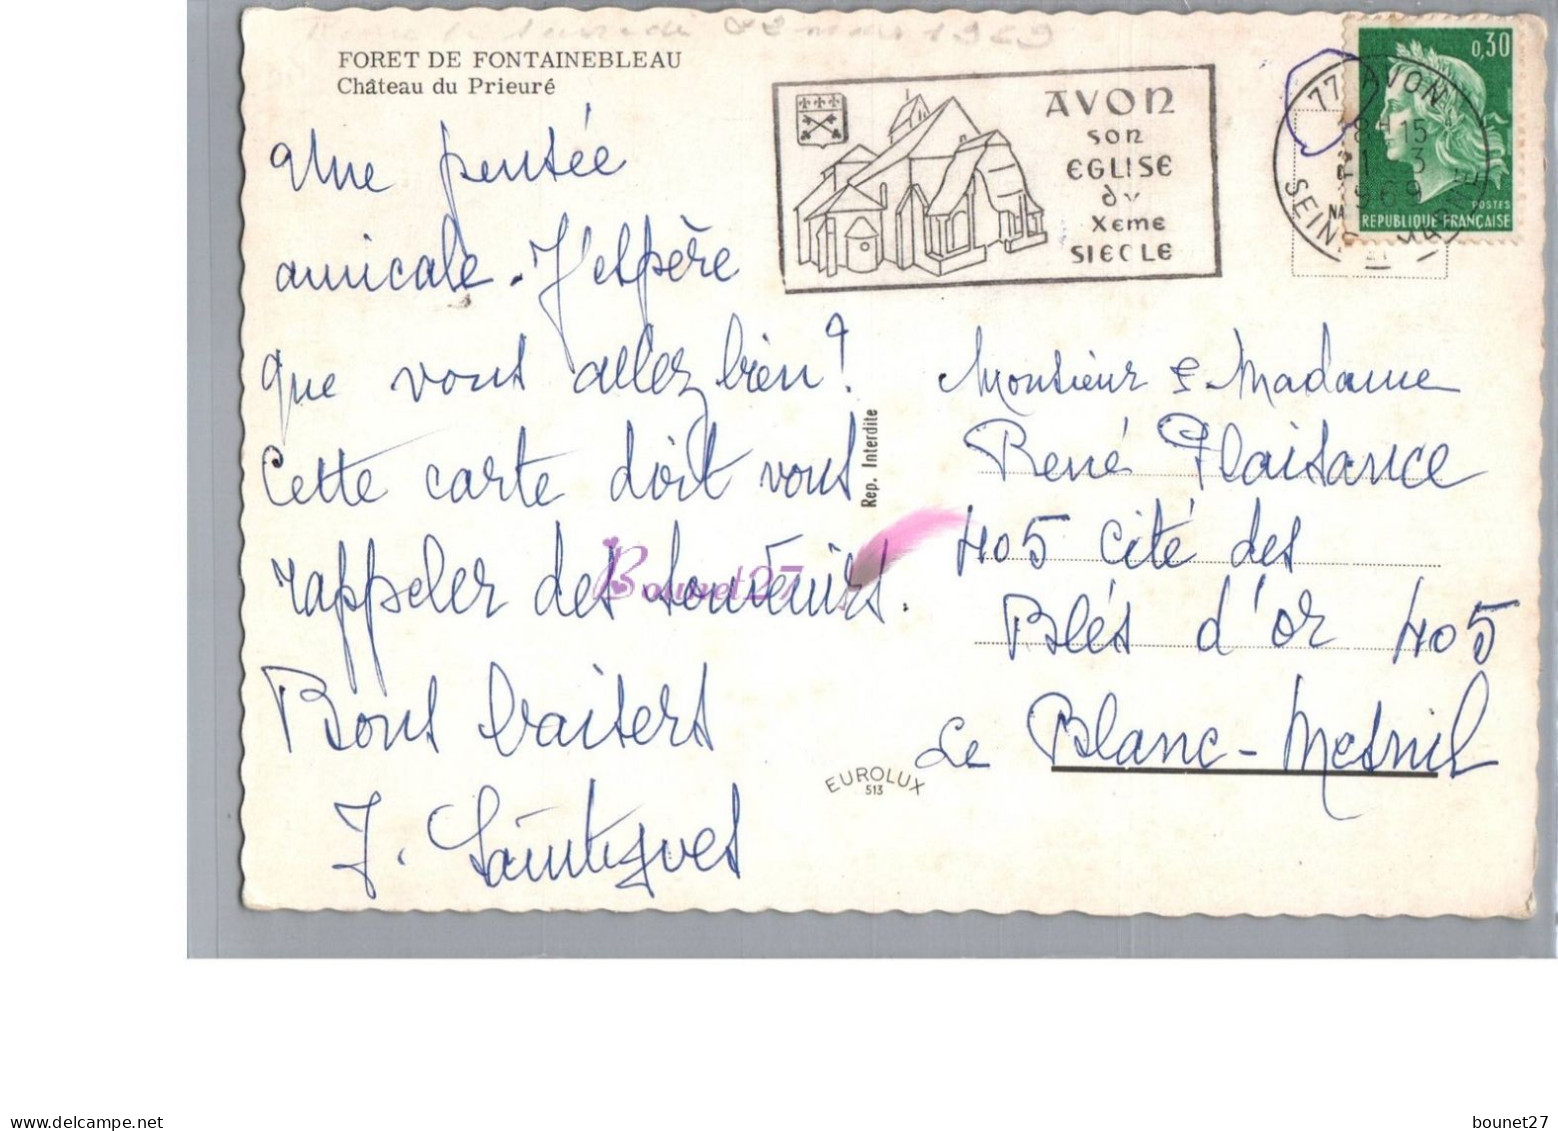 FORET DE FONTAINEBLEAU
Château du Prieuré
Une pensée
amicale. J'espère
que vous allez bien?
Cette carte doit vous
rappeler des souvenirs.
Bons baisers
J. Saintigves
AVON
son
EGLISE
du
Xeme
SIECLE
77 AVON
8H15
1 3
1969
SEINE
0,30
POSTES
REPUBLIQUE FRANÇAISE
Rep. Interdite
Monsieur & Madame
René Plaisance
405 Cité des
Blés d'or 405
Le Blanc-Mesnil
EUROLUX
513
Bounet27
bounet27